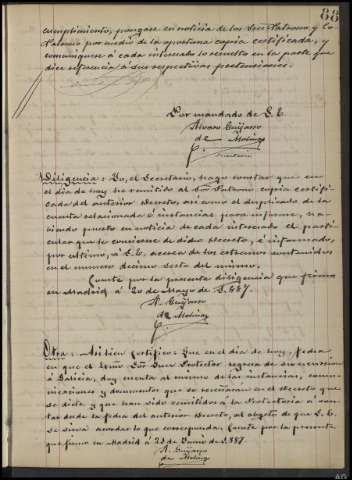 88
cumplimiento, póngase en noticia de los Sres. Patrono y Co-
Patrono por medio de la oportuna copia certificada, y
comuníquese á cada interesado lo resuelto en la parte que
dice referencia á sus respectivas pretensiones.
Por mandado de S. E.
Alvaro Guijarro
de Molina
Secretario
Diligencia: Yo, el Secretario, hago constar que en
el dia de hoy he remitido al Sr. Patrono copia certifi-
cada del anterior decreto, asi como el duplicado de la
cuenta relacionada é instancias para informe, ha-
biendo puesto en noticia de cada interesado el parti-
cular que le concierne de dicho decreto, é informado,
por último, á S. E. acerca de los extremos contenidos
en el número décimo sexto del mismo.
Conste por la presente diligencia que firmo
en Madrid á 20 de Mayo de 1.887.
A. Guijarro
de Molina
Otra: Asi bien certifico: Que en el dia de hoy, fecha
en que el Exmo. Sr. Protector regresa de su excursion
á Galicia, doy cuenta al mismo de las instancias, comu-
nicaciones y documentos que se reseñarán en el decreto que
se dicte y que han sido remitidos á la Protectoria á con-
tar desde la fecha del anterior decreto, al objeto de que S. E.
se sirva acordar lo que corresponda. Conste por la presente
que firmo en Madrid á 23 de Junio de 1.887.
A. Guijarro
de Molina